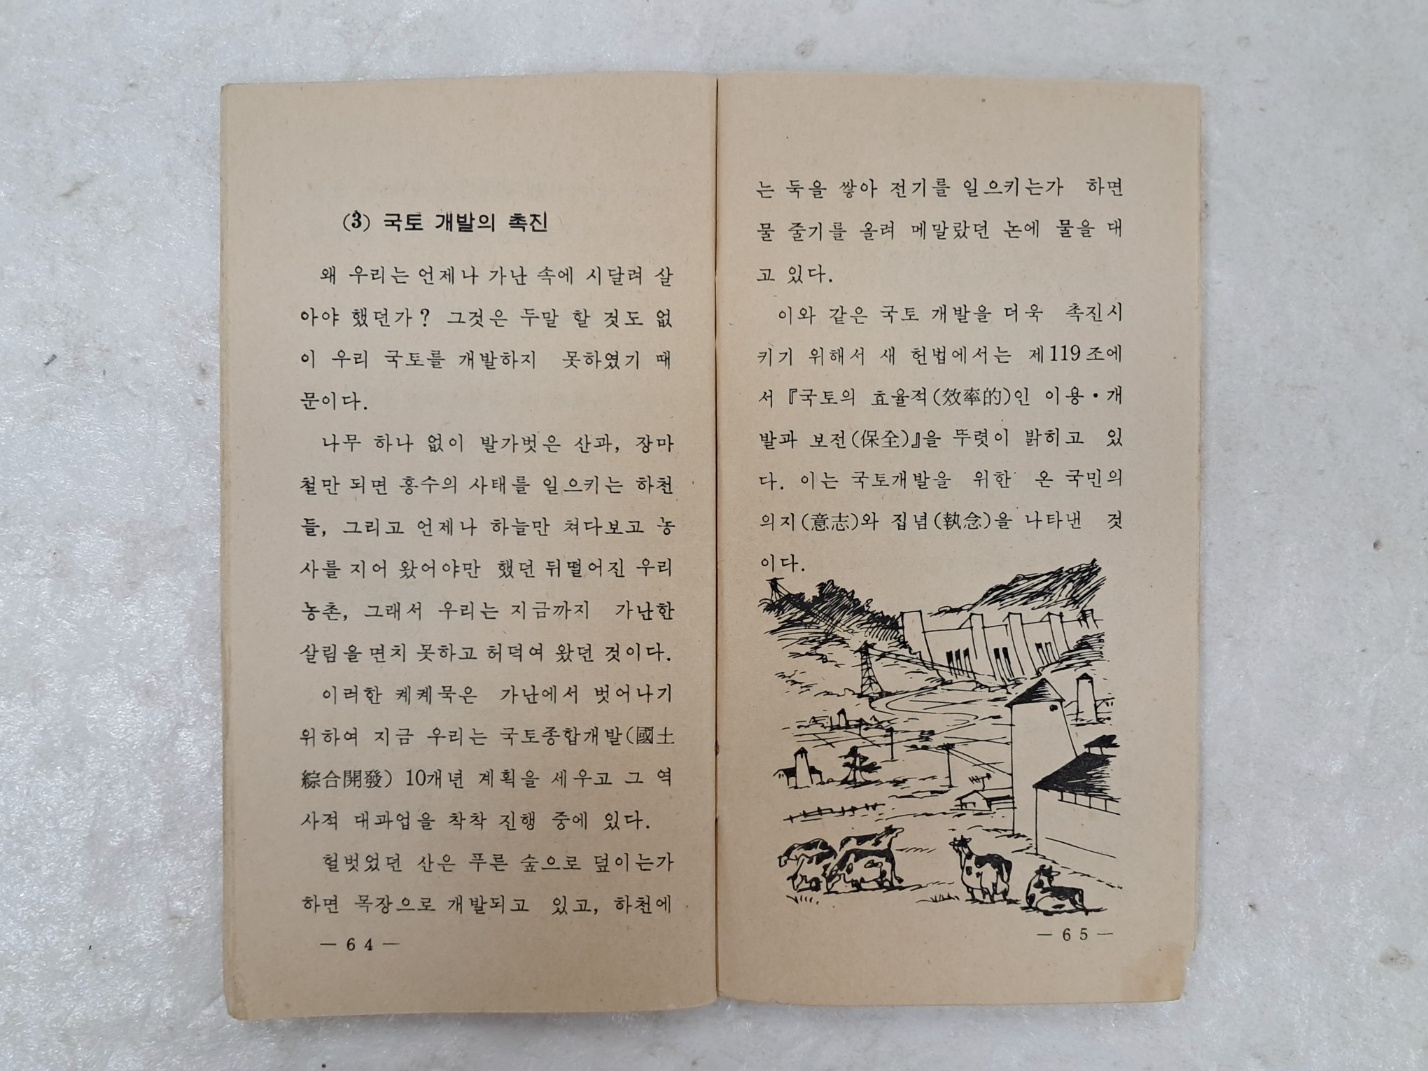 (3) 국토 개발의 촉진
왜 우리는 언제나 가난 속에 시달려 살
아야 했던가? 그것은 두말 할 것도 없
이 우리 국토를 개발하지 못하였기 때
문이다.
나무 하나 없이 발가벗은 산과, 장마
철만 되면 홍수의 사태를 일으키는 하천
들, 그리고 언제나 하늘만 쳐다보고 농
사를 지어 왔어야만 했던 뒤떨어진 우리
농촌, 그래서 우리는 지금까지 가난한
살림을 면치 못하고 허덕여 왔던 것이다.
이러한 케케묵은 가난에서 벗어나기
위하여 지금 우리는 국토종합개발(國土
綜合開發) 10개년 계획을 세우고 그 역
사적 대과업을 착착 진행 중에 있다.
헐벗었던 산은 푸른 숲으로 덮이는가
하면 목장으로 개발되고 있고, 하천에
— 64 —
는 둑을 쌓아 전기를 일으키는가 하면
물 줄기를 올려 메말랐던 논에 물을 대
고 있다.
이와 같은 국토 개발을 더욱 촉진시
키기 위해서 새 헌법에서는 제119조에
서 『국토의 효율적(效率的)인 이용·개
발과 보전(保全)』을 뚜렷이 밝히고 있
다. 이는 국토개발을 위한 온 국민의
의지(意志)와 집념(執念)을 나타낸 것
이다.
— 65 —